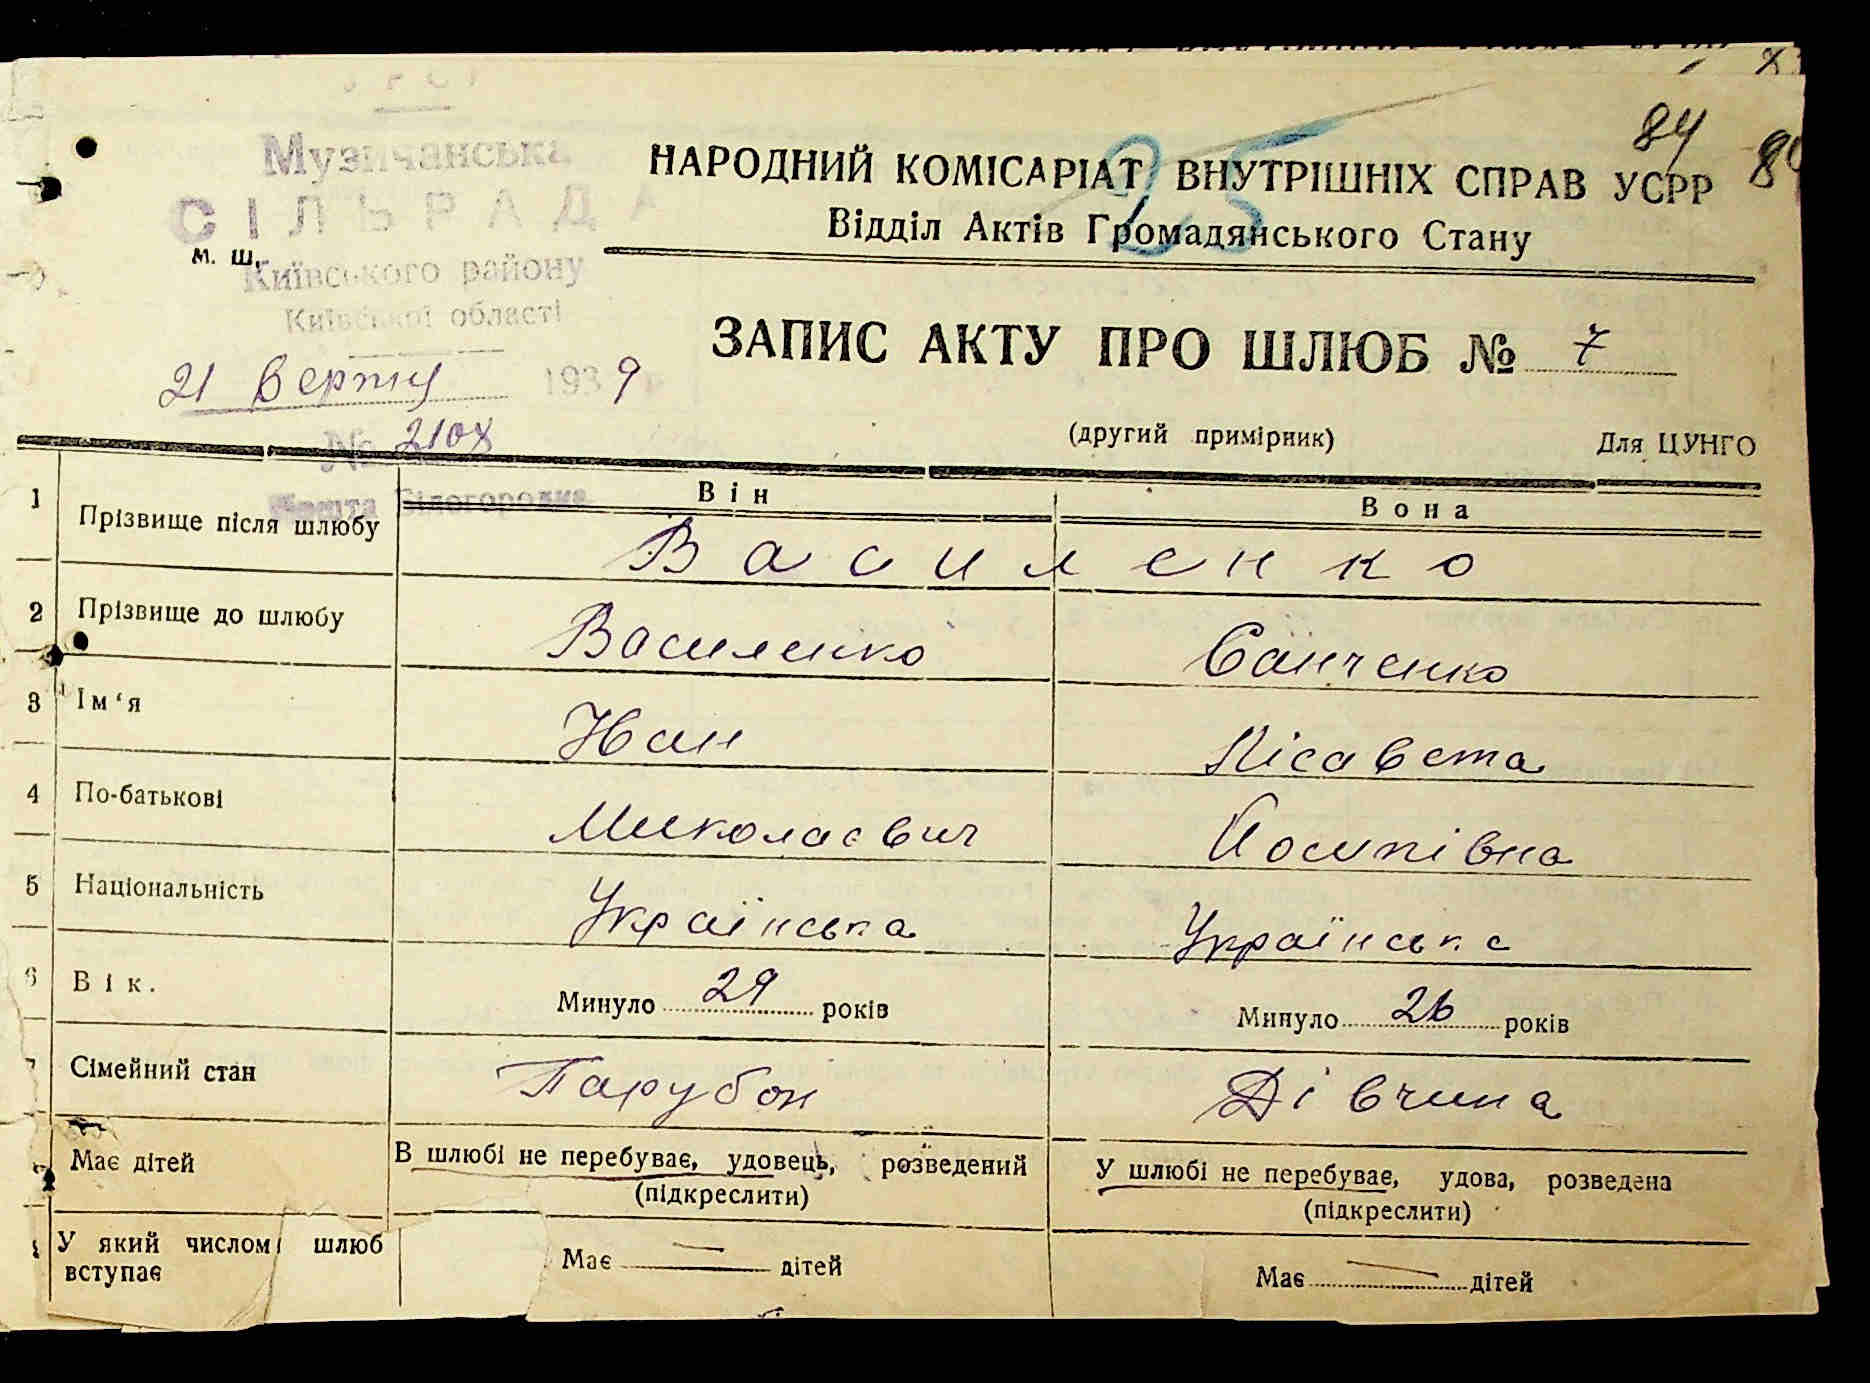 84
84
Музичанська
СІЛЬРАДА
м. ш.
Київського району
Київської області
НАРОДНИЙ КОМІСАРІАТ ВНУТРІШНІХ СПРАВ УСРР
25
Відділ Актів Громадянського Стану
ЗАПИС АКТУ ПРО ШЛЮБ № 7
21 Верпня 1939 р
№ 210х
(другий примірник) Для ЦУНГО
Пошта Білогородка
Він Вона
1 Прізвище після шлюбу Василенко
2 Прізвище до шлюбу Василенко
3 Ім‘я Іван Лісавета
4 По-батькові Миколаєвич Йосипівна
5 Національність Українська Українська
6 Вік. Минуло 29 років Минуло 26 років
7 Сімейний стан Парубок Дівчина
Має дітей В шлюбі не перебуває, удовець, розведений У шлюбі не перебуває, удова, розведена
(підкреслити) (підкреслити)
У який числом шлюб
вступає
Має — дітей Має — дітей